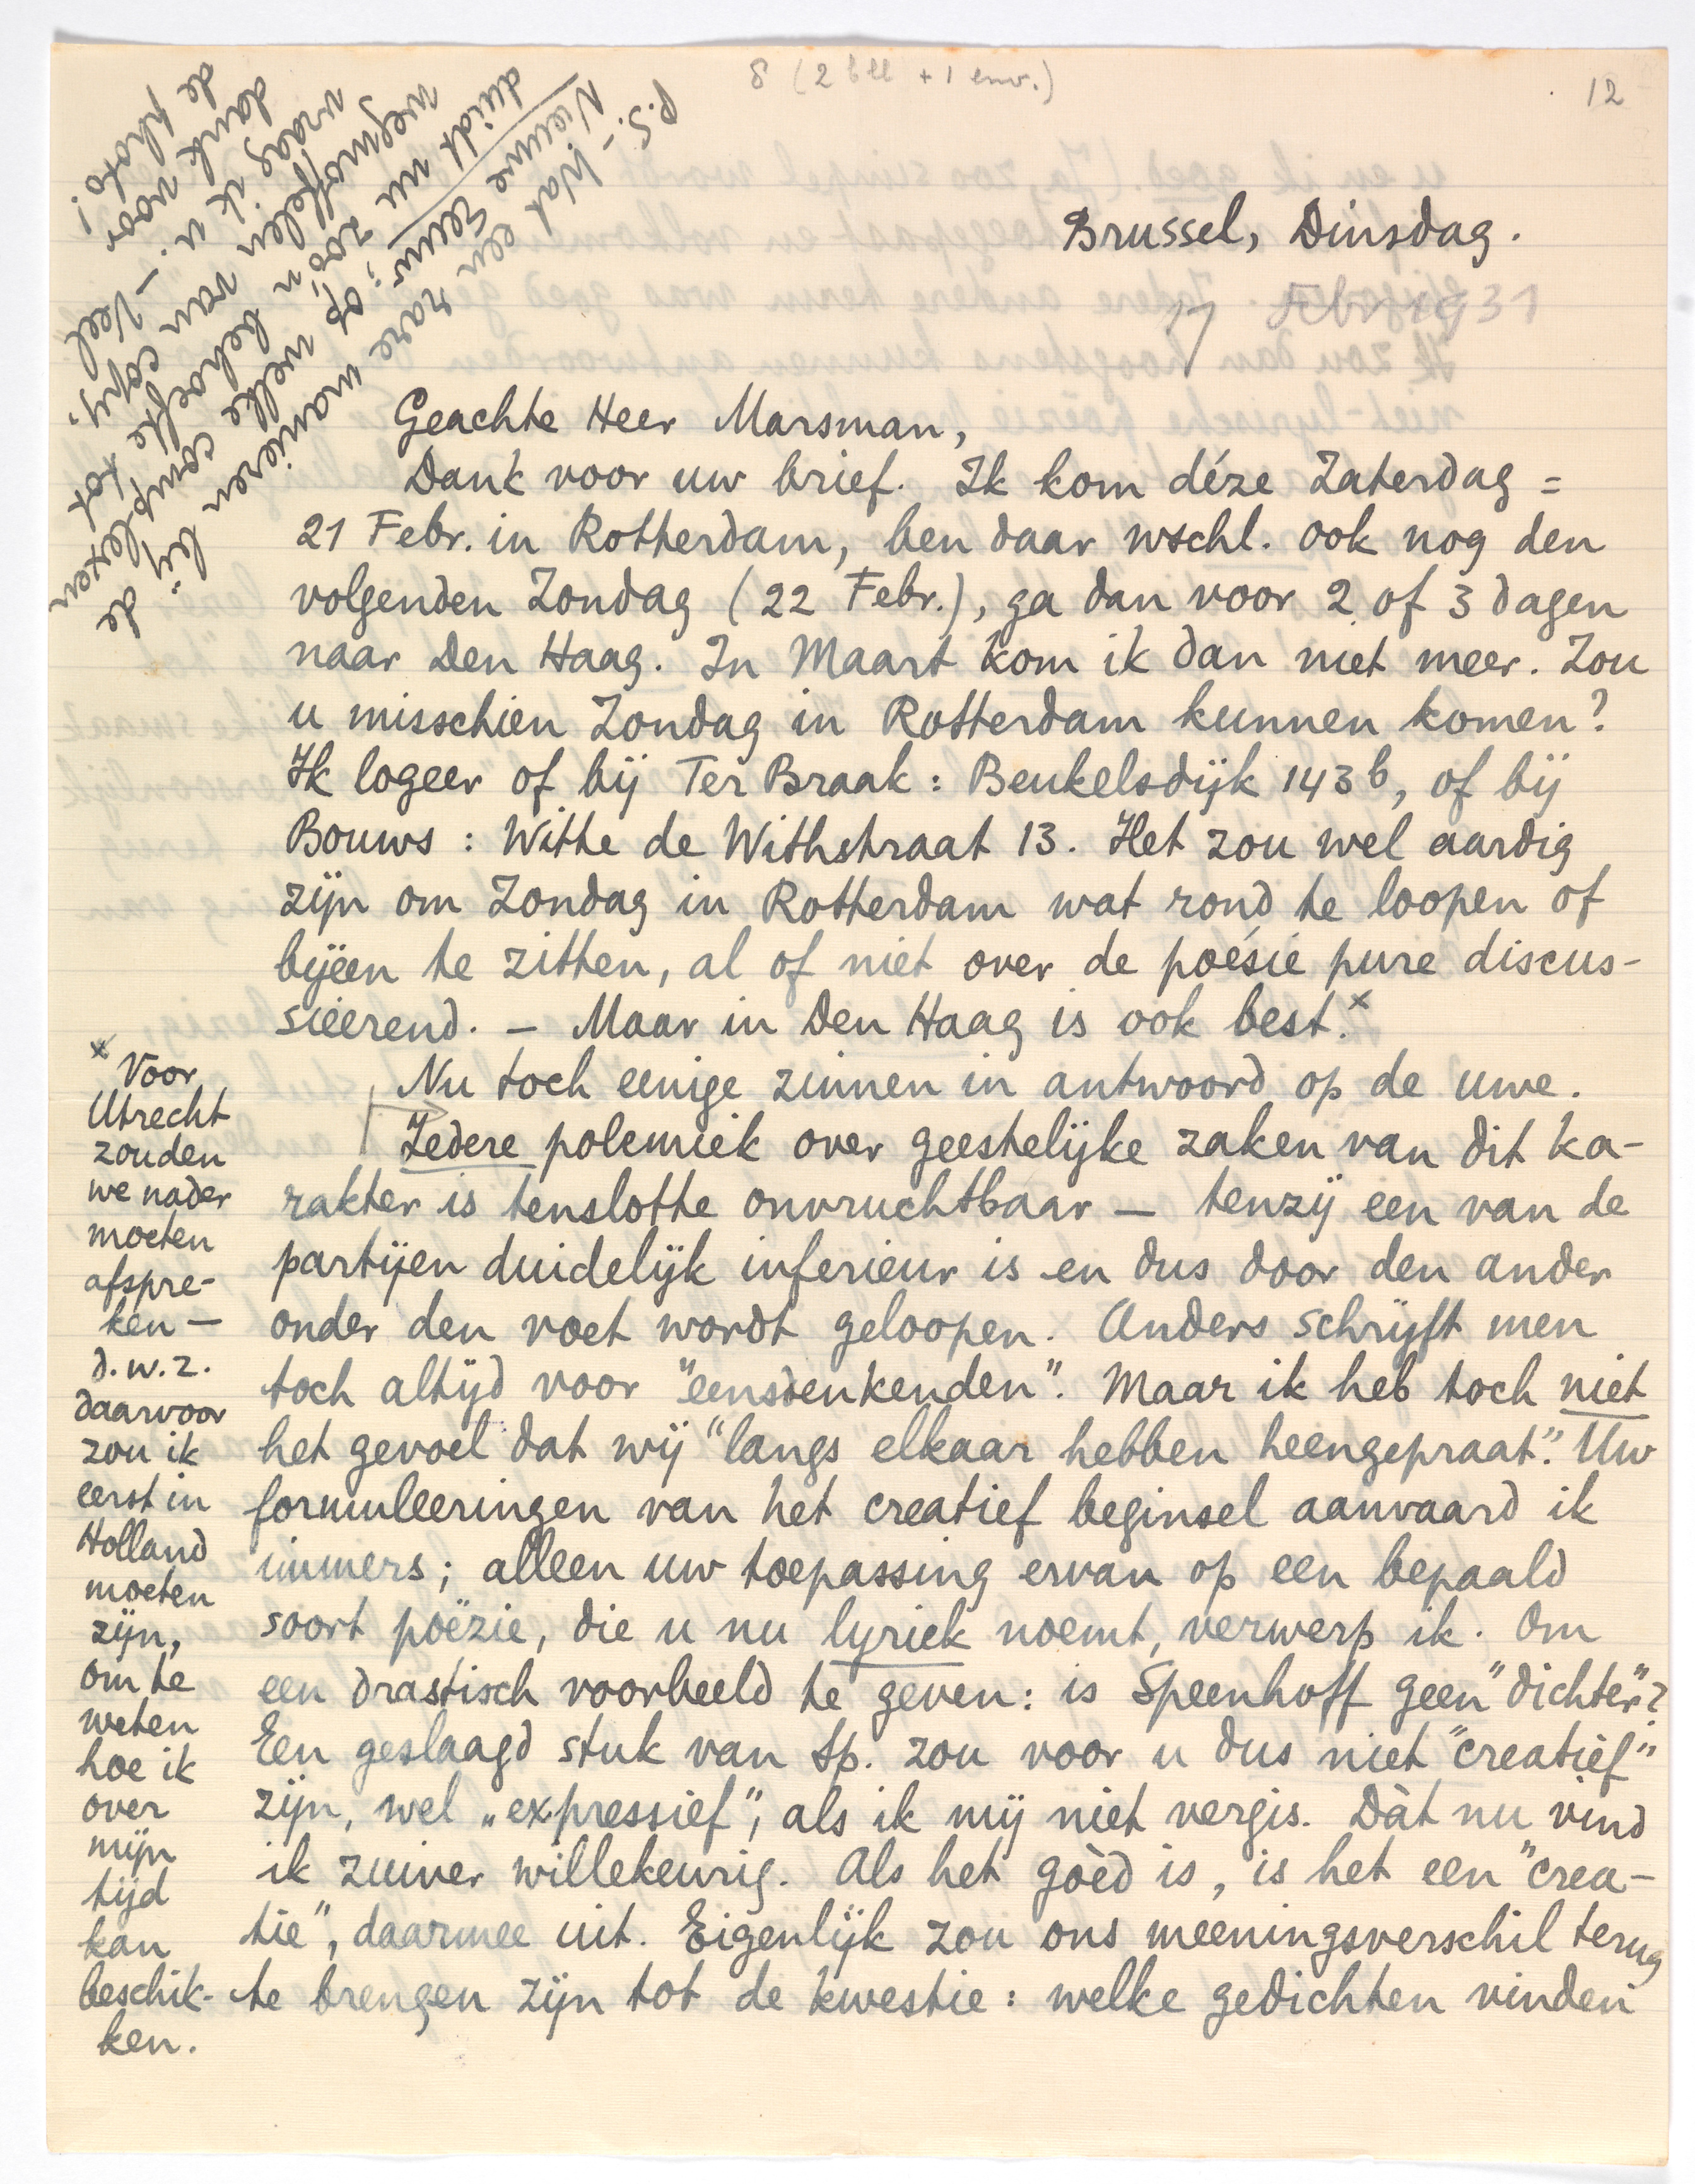 8 (2 bll + 1 env.)
12
P.S. – Wat een rare manieren bij de
Nieuwe Eeuw; op welke complexen
duidt nu zoo'n behoefte tot
wegmoffelen van copy,
vraag ik u. – Veel
dank voor
de photo!
Brussel, Dinsdag.
17 Febr 1931
Geachte Heer Marsman,
Dank voor uw brief. Ik kom déze Zaterdag =
21 Febr. in Rotterdam, ben daar wschl. ook nog den
volgenden Zondag (22 Febr.), ga dan voor 2 of 3 dagen
naar Den Haag. In Maart kom ik dan niet meer. Zou
u misschien Zondag in Rotterdam kunnen komen?
Ik logeer of bij Ter Braak: Beukelsdijk 143b, of bij
Bouws: Witte de Withstraat 13. Het zou wel aardig
zijn om Zondag in Rotterdam wat rond te loopen of
bijeen te zitten, al of niet over de poésie pure discus-
sieerend. – Maar in Den Haag is ook best.x
Nu toch eenige zinnen in antwoord op de uwe.
Iedere polemiek over geestelijke zaken van dit ka-
rakter is tenslotte onvruchtbaar – tenzij een van de
partijen duidelijk inferieur is en dus door den ander
onder den voet wordt geloopen. Anders schrijft men
toch altijd voor "eensdenkenden". Maar ik heb toch niet
het gevoel dat wij "langs elkaar hebben heengepraat". Uw
formuleeringen van het creatief beginsel aanvaard ik
immers; alleen uw toepassing ervan op een bepaald
soort poëzie, die u nu lyriek noemt, verwerp ik. Om
een drastisch voorbeeld te geven: is Speenhoff geen "dichter"?
Een geslaagd stuk van Sp. zou voor u dus niet "creatief"
zijn, wel „expressief", als ik mij niet vergis. Dàt nu vind
ik zuiver willekeurig. Als het góed is, is het een "crea-
tie", daarmee uit. Eigenlijk zou ons meeningsverschil terug
te brengen zijn tot de kwestie: welke gedichten vinden
x Voor
Utrecht
zouden
we nader
moeten
afspre-
ken –
d.w.z.
daarvoor
zou ik
eerst in
Holland
moeten
zijn,
om te
weten
hoe ik
over
mijn
tijd
kan
beschik-
ken.